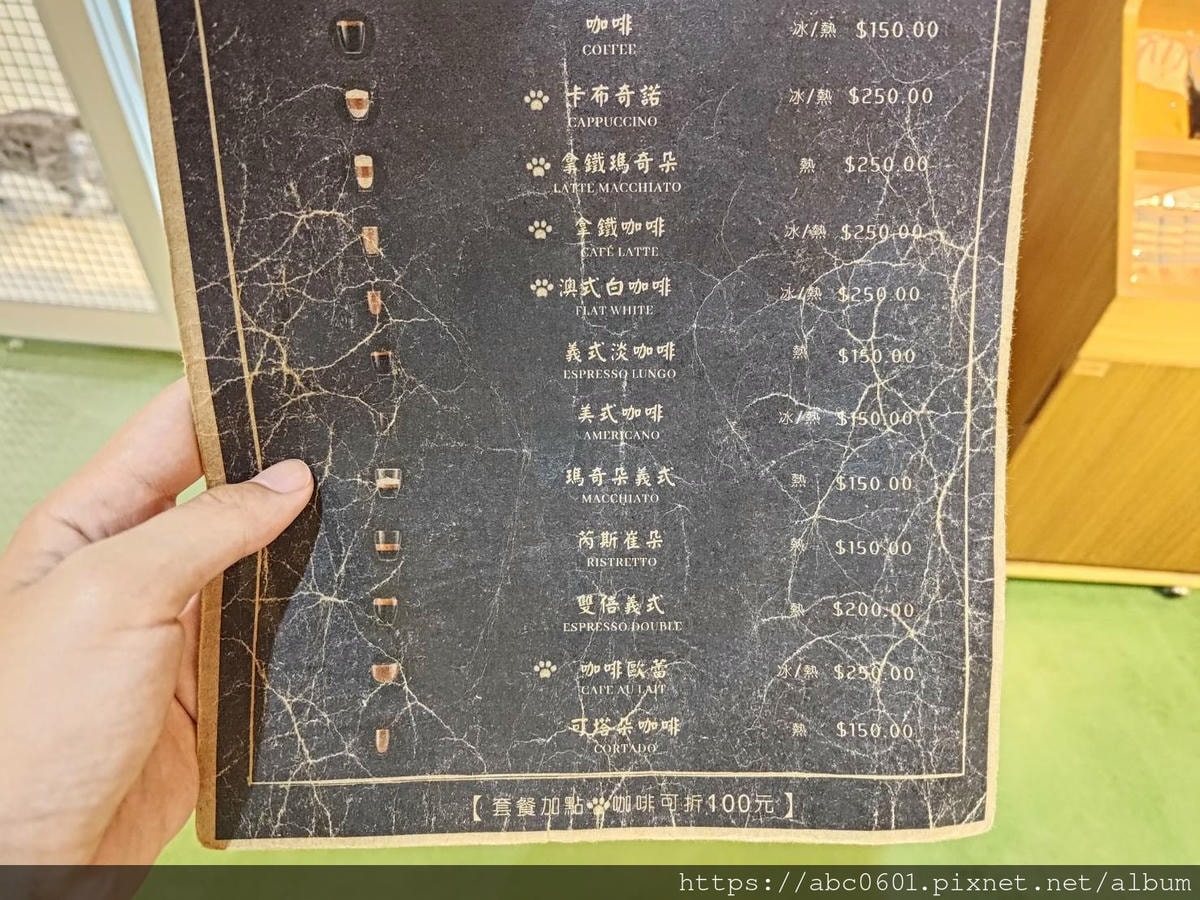 咖啡 冰/熱 $150.00
COFFEE
卡布奇諾 冰/熱 $250.00
CAPPUCCINO
拿鐵瑪奇朵 熱 $250.00
LATTE MACCHIATO
拿鐵咖啡 冰/熱 $250.00
CAFÉ LATTE
澳式白咖啡 冰/熱 $250.00
FLAT WHITE
義式淡咖啡 熱 $150.00
ESPRESSO LUNGO
美式咖啡 冰/熱 $150.00
AMERICANO
瑪奇朵義式 熱 $150.00
MACCHIATO
芮斯崔朵 熱 $150.00
RISTRETTO
雙倍義式 熱 $200.00
ESPRESSO DOUBLE
咖啡歐蕾 冰/熱 $250.00
CAFE AU LAIT
可塔朵咖啡 熱 $150.00
CORTADO
【套餐加點🐾咖啡可折100元】
https://abc0601.pixnet.net/album